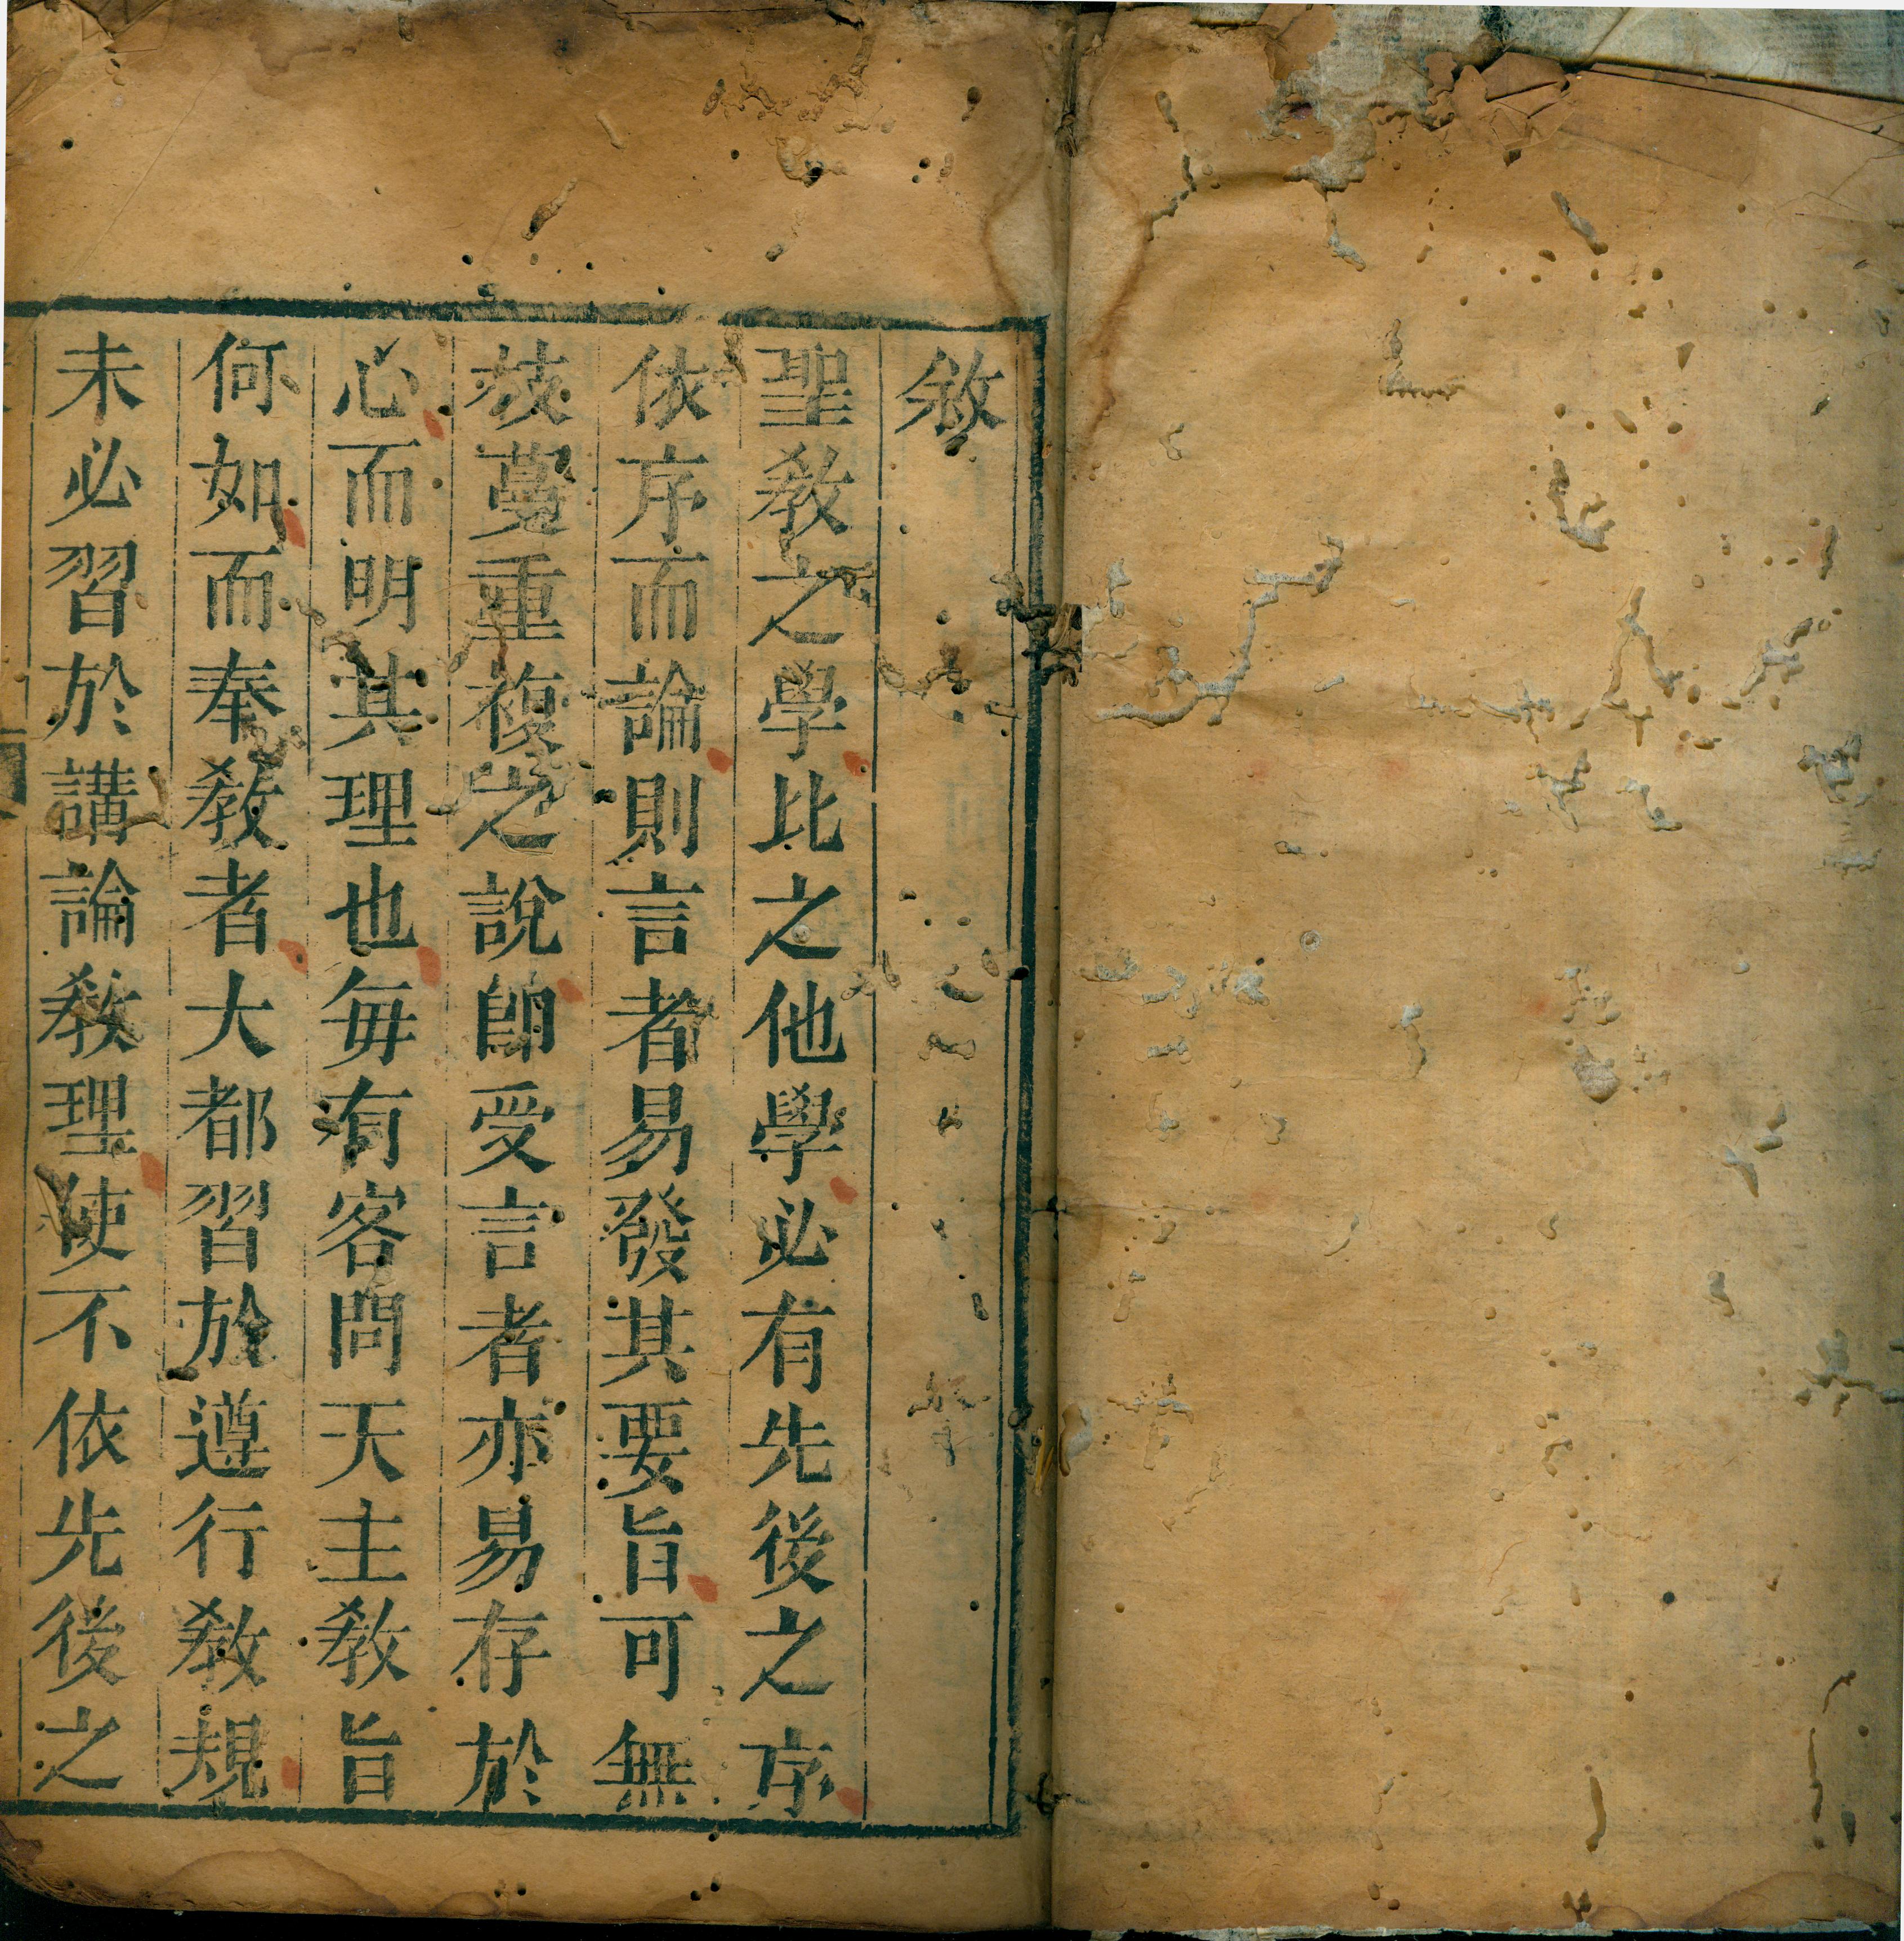 敘
聖教之學比之他學必有先後之序
依序而論則言者易發其要旨可無
蔓重複之說卽受言者亦易存於
心而明其理也每有客問天主教旨
何如而奉教者大都習於遵行教規
未必習於講論教理使不依先後之